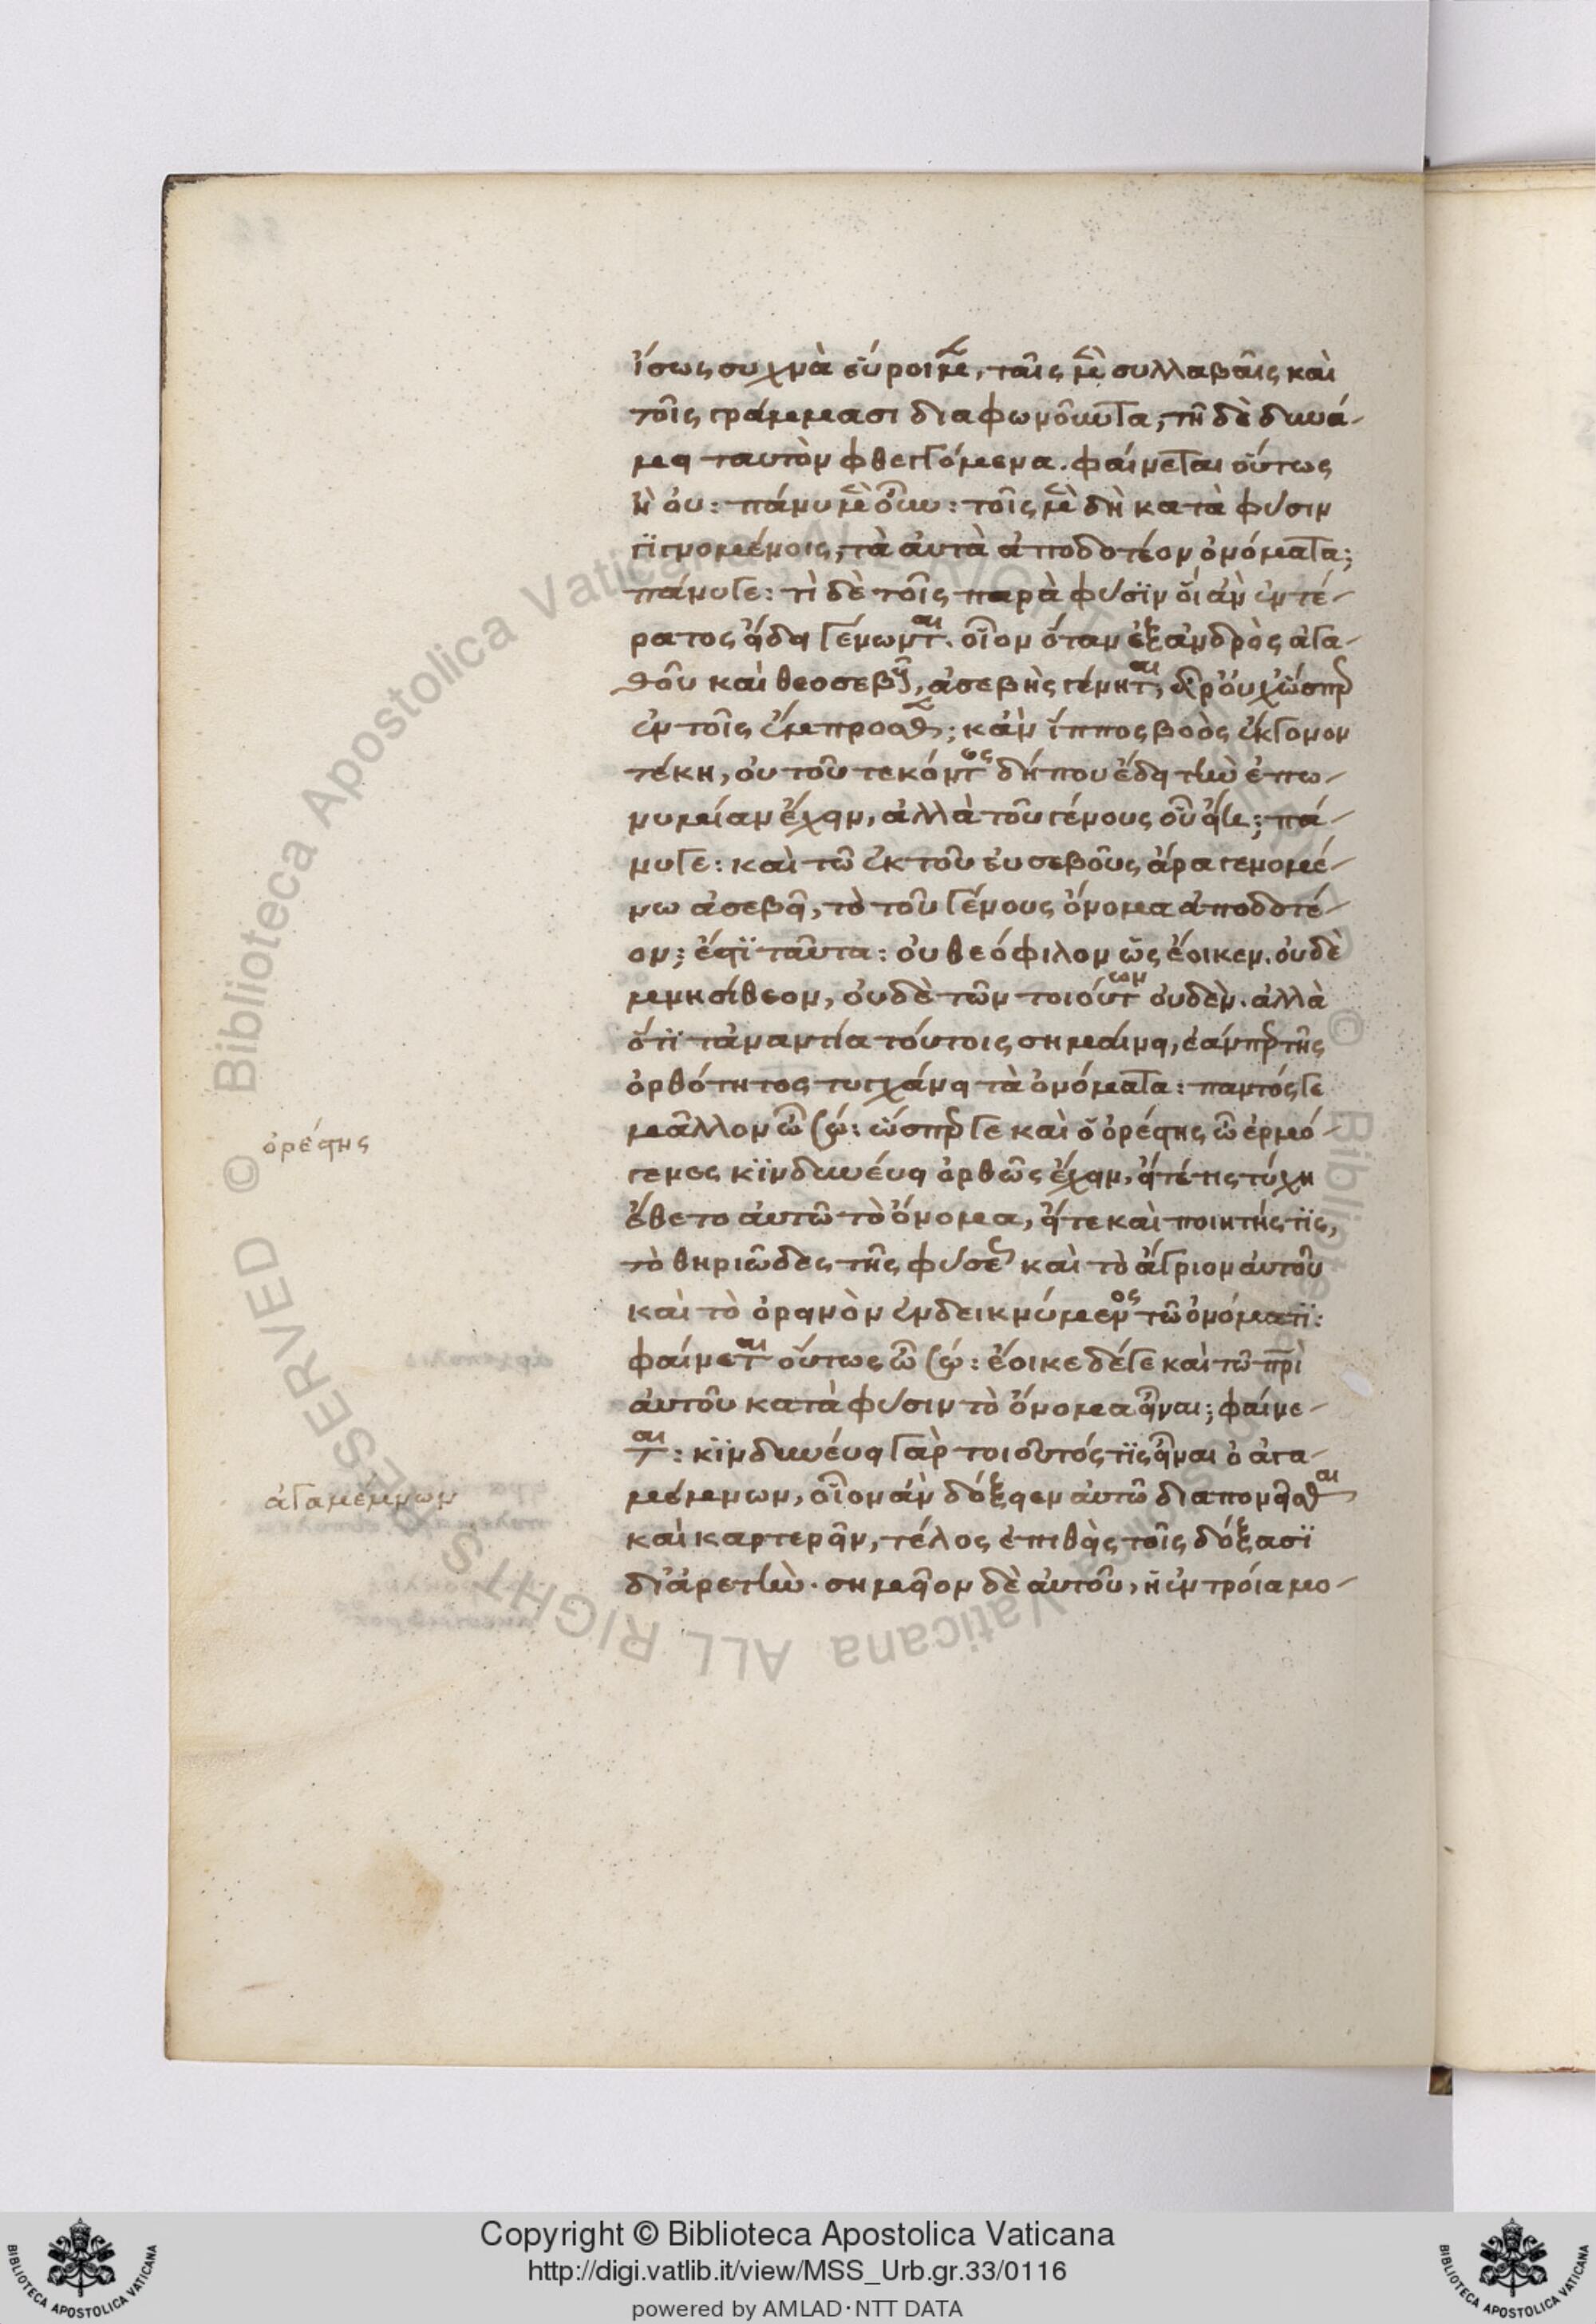 ἴσως συχνὰ εὕροιμεν, ταῖς μὲν συλλαβαῖς καὶ
τοῖς γράμμασι διαφωνοῦντα, τῆ δὲ δυνά-
μει ταυτὸν φθεγγόμενα. φαίνεται οὕτως
ἢ οὔ: πάνυ μὲν οὖν: τοῖς μὲν δὴ κατὰ φύσιν
γϊγνομένοις, τὰ αὐτὰ ἀποδοτέον ὀνόματα;
πάνυγε: τὶ δὲ τοῖς παρὰ φύσϊν οἳ ἂν ἐν τέ-
ρατος εἴδει γένωνται. οἷον ὅταν ἐξ ἀνδρὸς ἀγα-
θοῦ καὶ θεοσεβοῦς, ἀσεβὴς γένηται, ἆρ' οὐχ ὥσπερ
ἐν τοῖς ἔμπροσθεν; κἂν ἵππος βοὸς ἔκγονον
τέκη, οὐ τοῦ τεκόντος δήπου ἔδει τὴν ἐπω-
νυμίαν ἔχειν, ἀλλὰ τοῦ γένους οὗ εἴη; πά-
νυγε: καὶ τῶ ἐκ τοῦ εὐσεβοῦς ἄρα γενομέ-
νω ἀσεβεῖ, τὸ τοῦ γένους ὄνομα ἀποδοτέ-
ον; ἔστϊ ταῦτα: οὐ θεόφιλον ὡς ἔοικεν. οὐδὲ
μνησίθεον, οὐδὲ τῶν τοιούτων οὐδὲν. ἀλλὰ
ὅτϊ τἀναντία τούτοις σημαίνει, ἐάνπερ τῆς
ὀρθότητος τυγχάνει τὰ ὀνόματα: παντός γε
μᾶλλον ὦ σώ: ὥσπερ γε καὶ ὁ ὀρέστης ὦ ἑρμό-
γενες κϊνδυνεύει ὀρθῶς ἔχειν, εἴτέ τις τύχη
ἔθετο αὐτῶ τὸ ὄνομα, εἴτε καὶ ποιητής τϊς,
τὸ θηριῶδες τῆς φύσεως καὶ τὸ ἄγριον αὐτοῦ
καὶ τὸ ὀρεινὸν ἐνδεικνύμενος τῶ ὀνόματϊ:
φαίνεται οὕτως ὦ σώ: ἔοικε δέ γε καὶ τῶ πατρὶ
αὐτοῦ κατὰ φύσιν τὸ ὄνομα εἶναι; φαίνε-
ται: κϊνδυνεύει γὰρ τοιοῦτός τϊς εἶναι ὁ ἀγα-
μέμνων, οἷον ἂν δόξειεν αὐτῶ διαπονεῖσθαι
καὶ καρτερεῖν, τέλος ἐπιθεὶς τοῖς δόξασϊ
δϊ' ἀρετὴν. σημεῖον δὲ αὐτοῦ, ἡ ἐν τροία μο-
ὀρέστης
ἀγαμεμνων
Copyright © Biblioteca Apostolica Vaticana
http://digi.vatlib.it/view/MSS_Urb.gr.33/0116
powered by AMLAD·NTT DATA
© Biblioteca Apostolica Vaticana ALL RIGHTS RESERVED
BIBLIOTECA APOSTOLICA VATICANA
BIBLIOTECA APOSTOLICA VATICANA